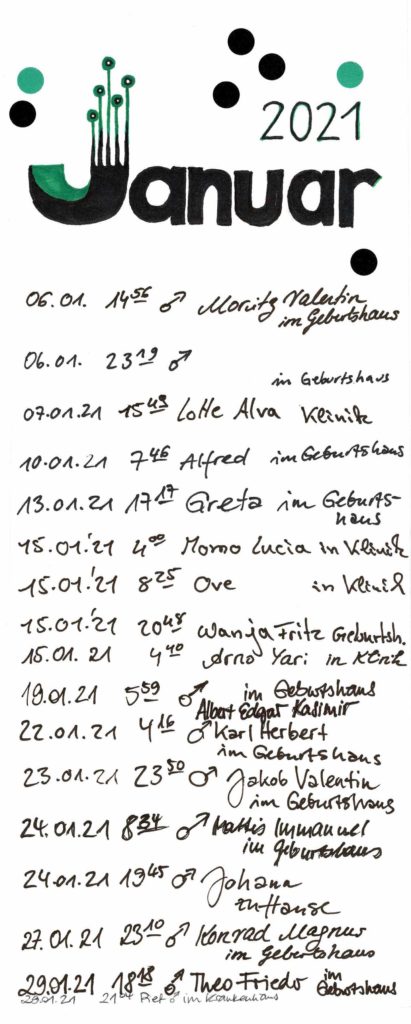 2021
Januar
06.01. 14 56 ♂ Moritz Valentin
im Geburtshaus
06.01. 23 19 ♂
im Geburtshaus
07.01.21 15 43 Lotte Alva Klinik
10.01.21 7 46 Alfred im Geburtshaus
13.01.21 17 17 Greta im Geburts-
haus
15.01.'21 4 00 Momo Lucia in Klinik
15.01.'21 8 25 Ove in Klinik
15.01.'21 20 48 Wanja Fritz Geburtsh.
15.01.21 4 40 Arno Yari in Klinik
19.01.21 5 59 ♂ im Geburtshaus
Albert Edgar Kasimir
22.01.21 4 16 ♂ Karl Herbert
im Geburtshaus
23.01.21 23 50 ♂ Jakob Valentin
im Geburtshaus
24.01.21 8 34 ♂ Mattis Immanuel
im Geburtshaus
24.01.21 19 45 ♂ Johana
zu Hause
27.01.21 23 10 ♂ Konrad Magnus
im Geburtshaus
29.01.21 18 18 ♂ Theo Frieder im
Geburtshaus
♂ im Krankenhaus